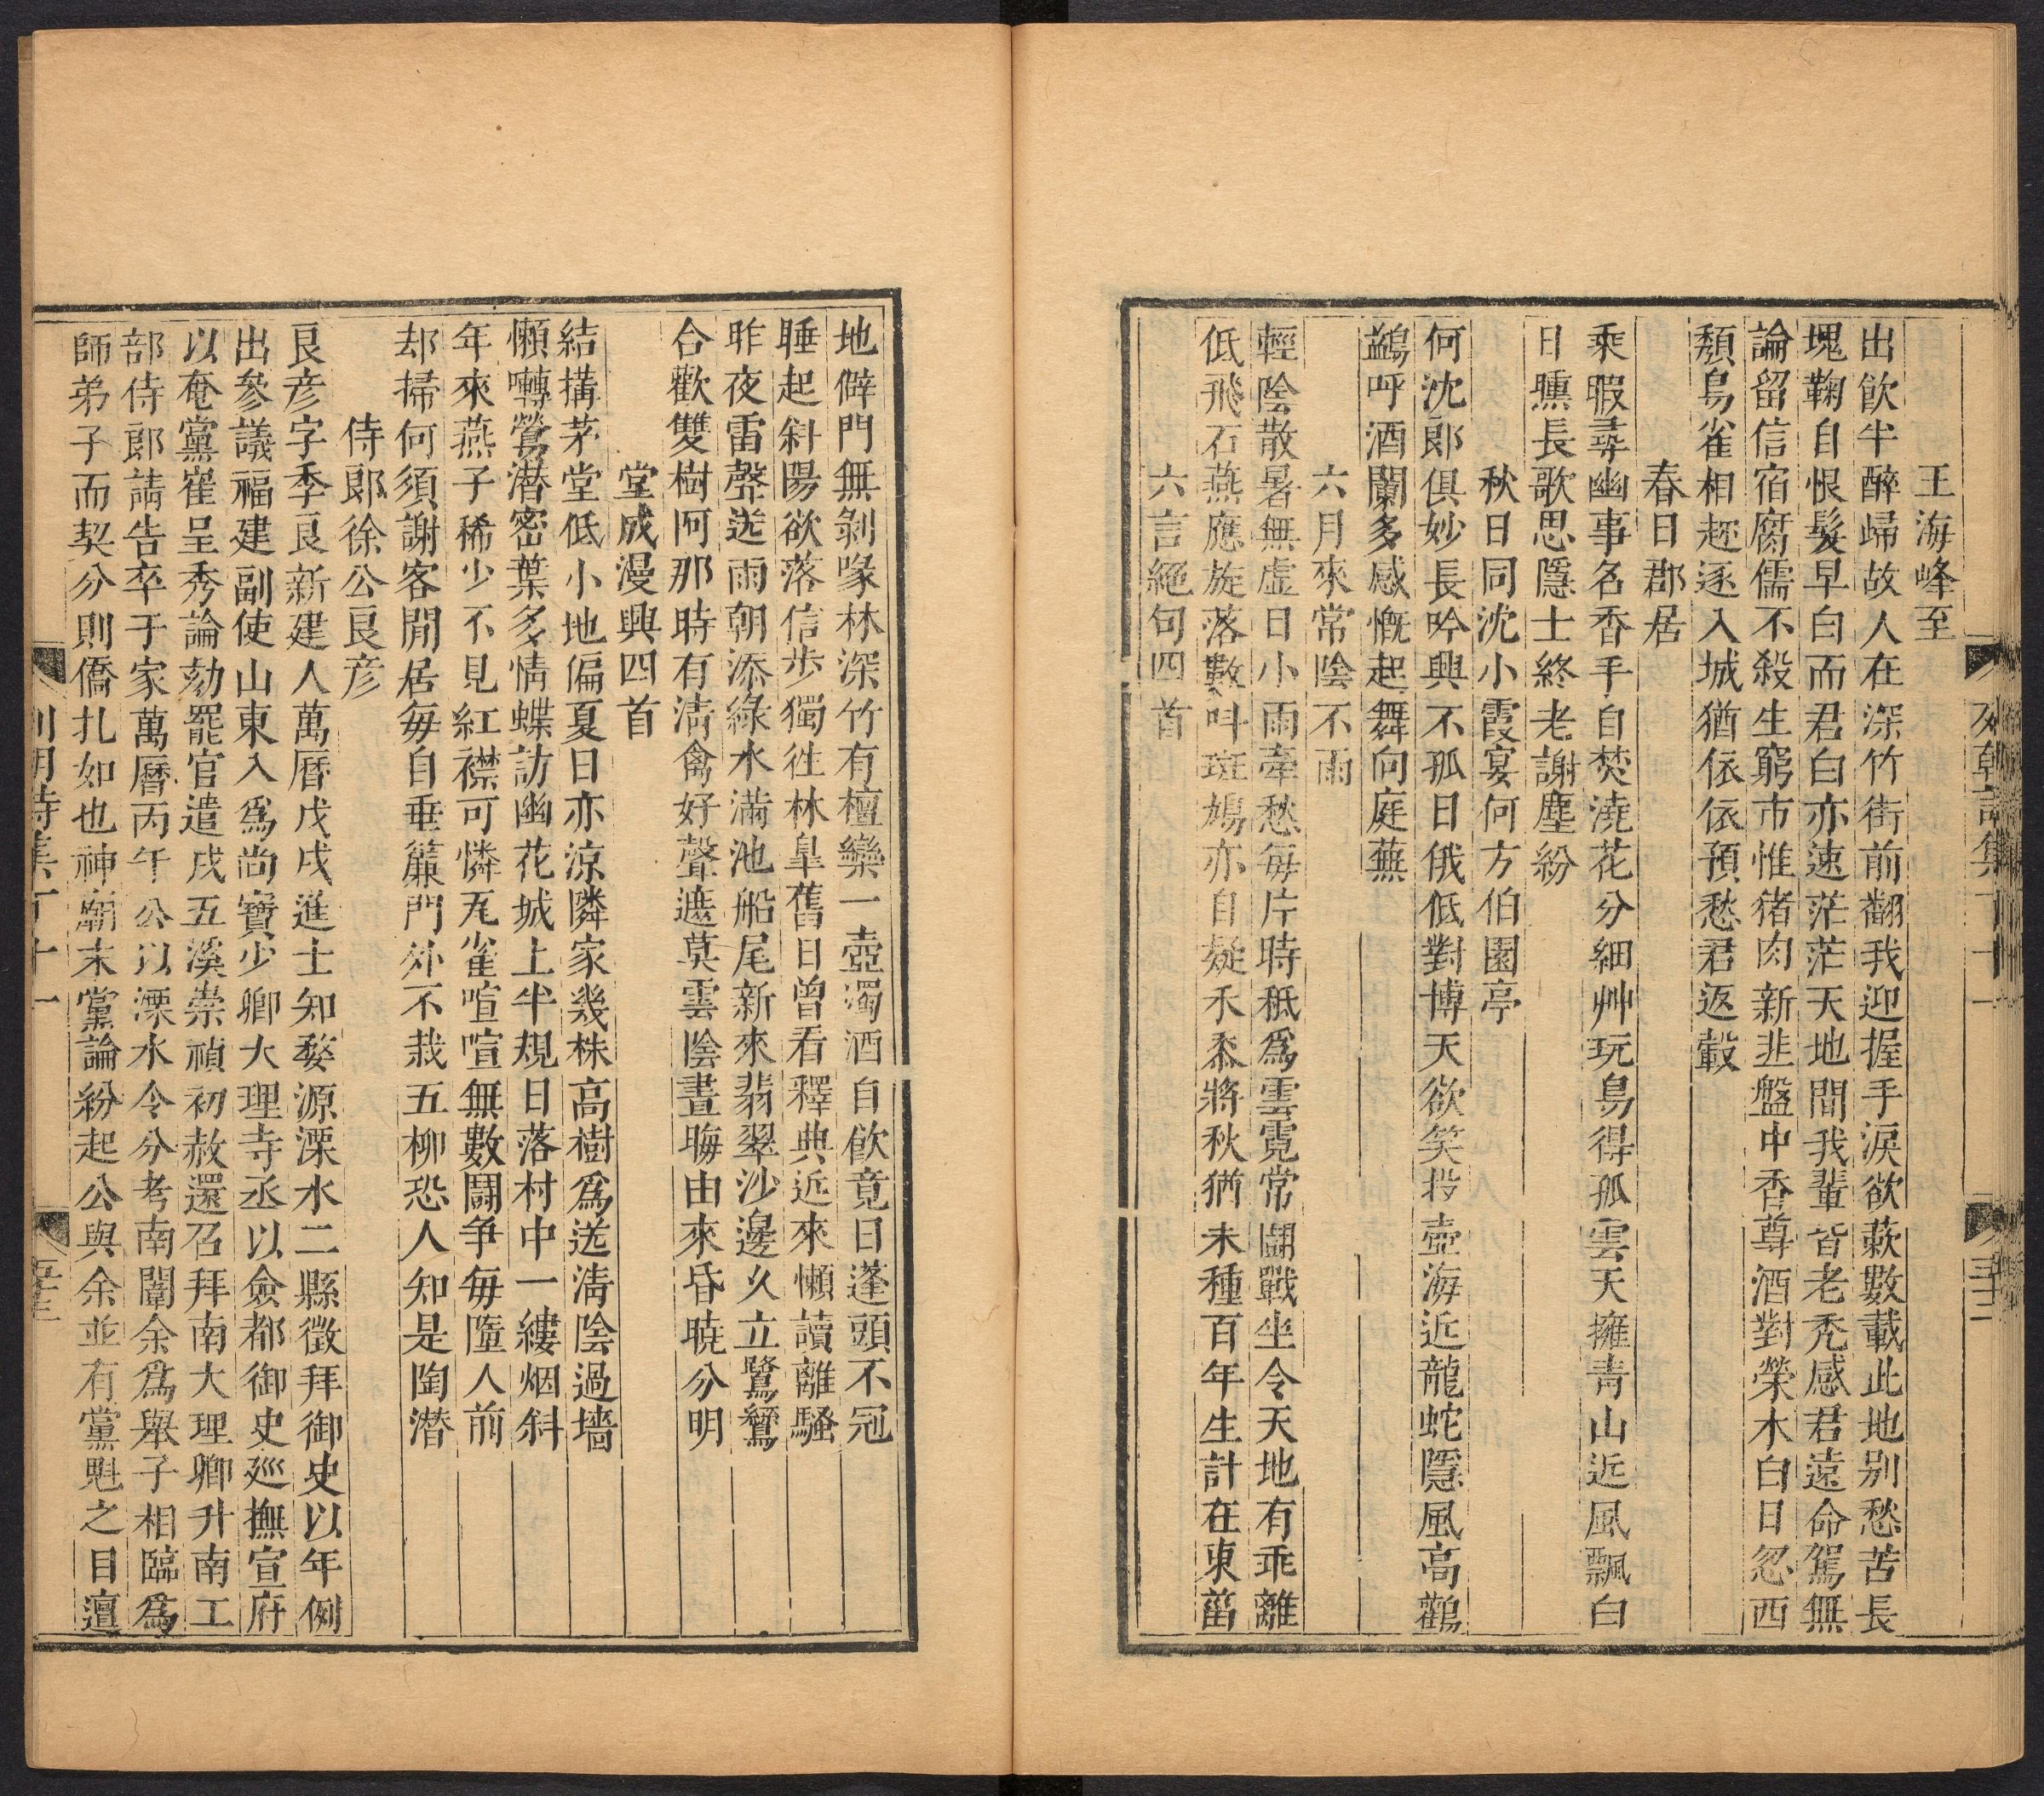 王海峰至
出飲半醉歸故人在深竹街前翻我迎握手淚欲蔌數載此地别愁苦長
塊鞠自恨髮早白而君白亦速茫茫天地間我輩皆老秃感君遠命駕無
論留信宿腐儒不殺生窮市惟猪肉新韭盤中香尊酒對榮木白日忽西
頽鳥雀相趂逐入城猶依依預愁君返轂
春日郡居
乘暇尋幽事名香手自焚澆花分細艸玩鳥得孤雲天擁青山近風飄白
日曛長歌思隱士終老謝塵紛
秋日同沈小霞宴何方伯園亭
何沈郎俱妙長吟興不孤日俄低對博天欲笑投壺海近龍蛇隱風高鸛
鷁呼酒闌多感慨起舞向庭蕪
六月來常陰不雨
輕陰散暑無虚日小雨牽愁每片時秪爲雲霓常鬪戰坐令天地有乖離
低飛石燕應旋落數呌斑鳩亦自疑禾黍將秋猶未種百年生計在東菑
六言絕句四首
列朝詩集丁十一
地僻門無剝喙林深竹有檀欒一壺濁酒自飲竟日蓬頭不冠
睡起斜陽欲落信步獨往林臯舊日曾看釋典近來懶讀離騷
昨夜雷聲送雨朝添綠水滿池船尾新來翡翠沙邊久立鷺鷥
合歡雙樹阿那時有清禽好聲遮莫雲陰晝晦由來昏曉分明
堂成漫興四首
結搆茅堂低小地偏夏日亦凉隣家幾株高樹爲送清陰過墻
懶囀鶯潛密葉多情蝶訪幽花城上半規日落村中一縷烟斜
年來燕子稀少不見紅襟可憐瓦雀喧喧無數鬪争每墮人前
却掃何須謝客閒居每自垂簾門外不栽五柳恐人知是陶潛
侍郎徐公良彦
良彦字季良新建人萬曆戊戌進士知婺源溧水二縣徵拜御史以年例
出參議福建副使山東入爲尚寶少卿大理寺丞以僉都御史廵撫宣府
以奄黨崔呈秀論劾罷官遣戍五溪崇禎初赦還召拜南大理卿升南工
部侍郎請告卒于家萬曆丙午公以溧水令分考南闈余爲舉子相臨爲
師弟子而契分則僑扎如也神廟末黨論紛起公與余並有黨魁之目邅
列朝詩集丁十一